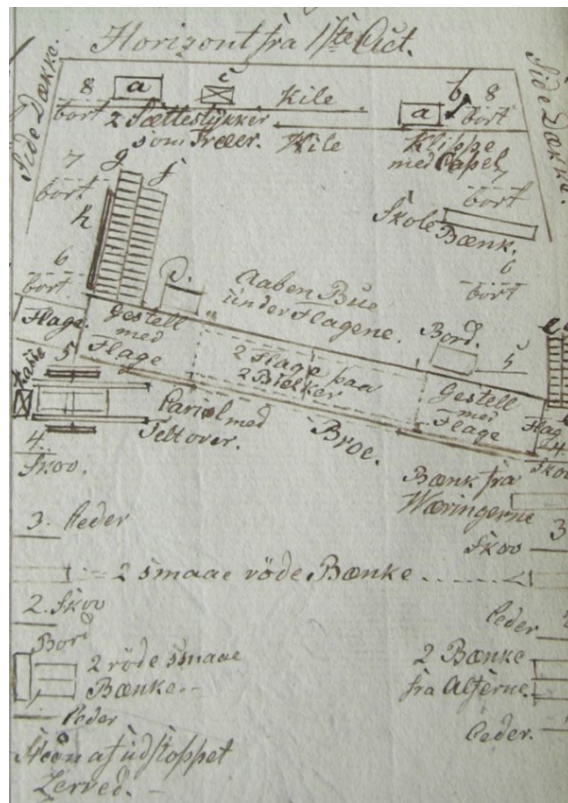 Horizont fra 1ste Act.
Side Dække.
Side Dække.
8
bort
a
c
Kile
a
b
8
bort
2 Sættestykker
som Træer.
Kile
Klippe
med Capel
7
bort
g
f
h
7
bort
Skole Bænk.
6
bort
6
bort
d.
Aaben Bue
under Flagene.
Bord.
Flage.
Gestell
med
Flage
2 Flage paa
2 Bielker
5
Gestell
med
Flage
Flag
5
Pariel med
Telt over.
Broe.
4.
Skov.
4.
Skov
Bænk fra
Wæringerne
3. Peder
3
Skov
2 smaae röde Bænke
2. Skov
Peder
Bord
2 röde smaae
Bænke.
2 Bænke
fra Alferne.
Peder
Peder.
Steen af udstoppet
Lerred.